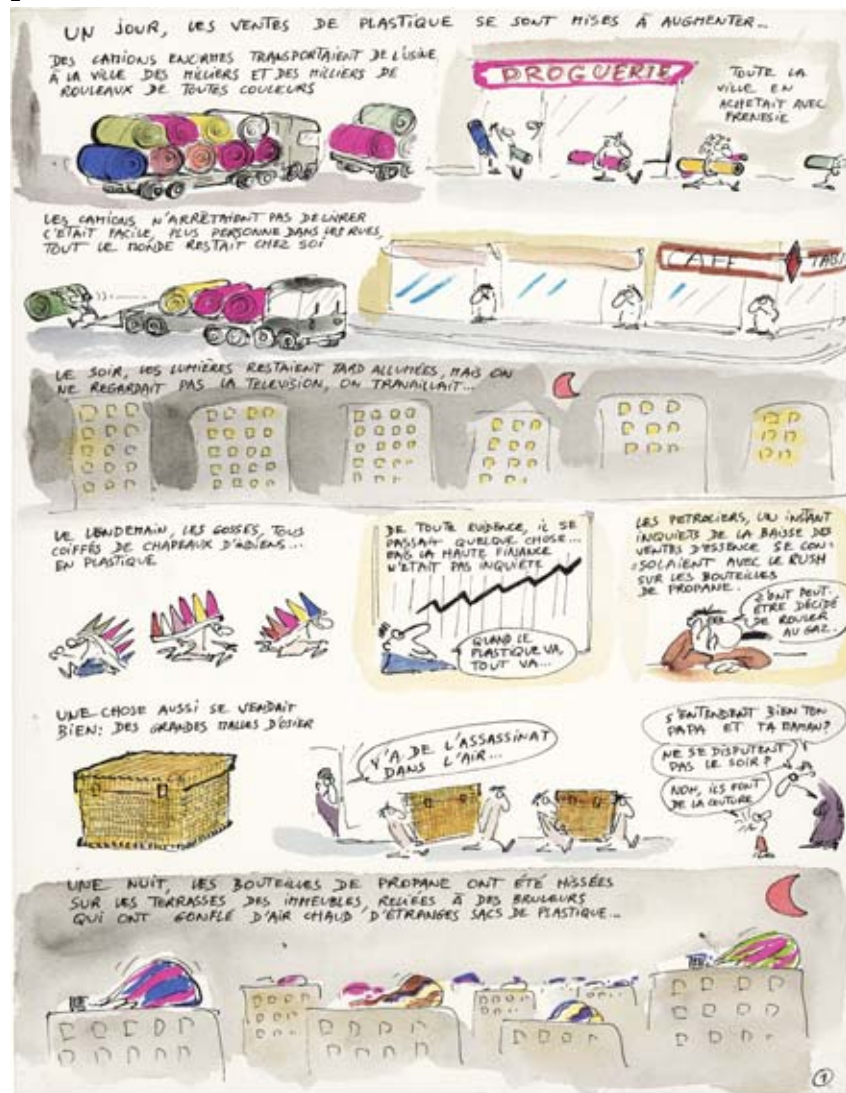 UN JOUR, LES VENTES DE PLASTIQUE SE SONT MISES À AUGMENTER...
DES CAMIONS ENORMES TRANSPORTAIENT DE L'USINE
À LA VILLE DES MILLIERS ET DES MILLIERS DE
ROULEAUX DE TOUTES COULEURS
DROGUERIE
TOUTE LA
VILLE EN
ACHETAIT AVEC
FRENESIE
LES CAMIONS N'ARRÊTAIENT PAS DE LIVRER
C'ETAIT FACILE, PLUS PERSONNE DANS LES RUES,
TOUT LE MONDE RESTAIT CHEZ SOI
CAFE
TAB
LE SOIR, LES LUMIÈRES RESTAIENT TARD ALLUMÉES, MAIS ON
NE REGARDAIT PAS LA TELEVISION, ON TRAVAILLAIT...
LE LENDEMAIN, LES GOSSES, TOUS
COIFFÉS DE CHAPEAUX D'INDIENS...
EN PLASTIQUE
DE TOUTE EVIDENCE, IL SE
PASSAIT QUELQUE CHOSE...
MAIS LA HAUTE FINANCE
N'ÉTAIT PAS INQUIÈTE
QUAND LE
PLASTIQUE VA,
TOUT VA...
LES PETROLIERS, UN INSTANT
INQUIETS DE LA BAISSE DES
VENTES D'ESSENCE SE CON-
-SOLAIENT AVEC LE RUSH
SUR LES BOUTEILLES
DE PROPANE.
Z'ONT PEUT-
ETRE DÉCIDÉ
DE ROULER
AU GAZ.
UNE CHOSE AUSSI SE VENDAIT
BIEN: DES GRANDES MALLES D'OSIER
Y'A DE L'ASSASSINAT
DANS L'AIR...
S'ENTENDENT BIEN TON
PAPA ET TA MAMAN?
NE SE DISPUTENT
PAS LE SOIR?
NON, ILS FONT
DE LA COUTURE
UNE NUIT, LES BOUTEILLES DE PROPANE ONT ÉTÉ HISSÉES
SUR LES TERRASSES DES IMMEUBLES, RELIÉES À DES BRULEURS
QUI ONT GONFLÉ D'AIR CHAUD D'ÉTRANGES SACS DE PLASTIQUE...
1